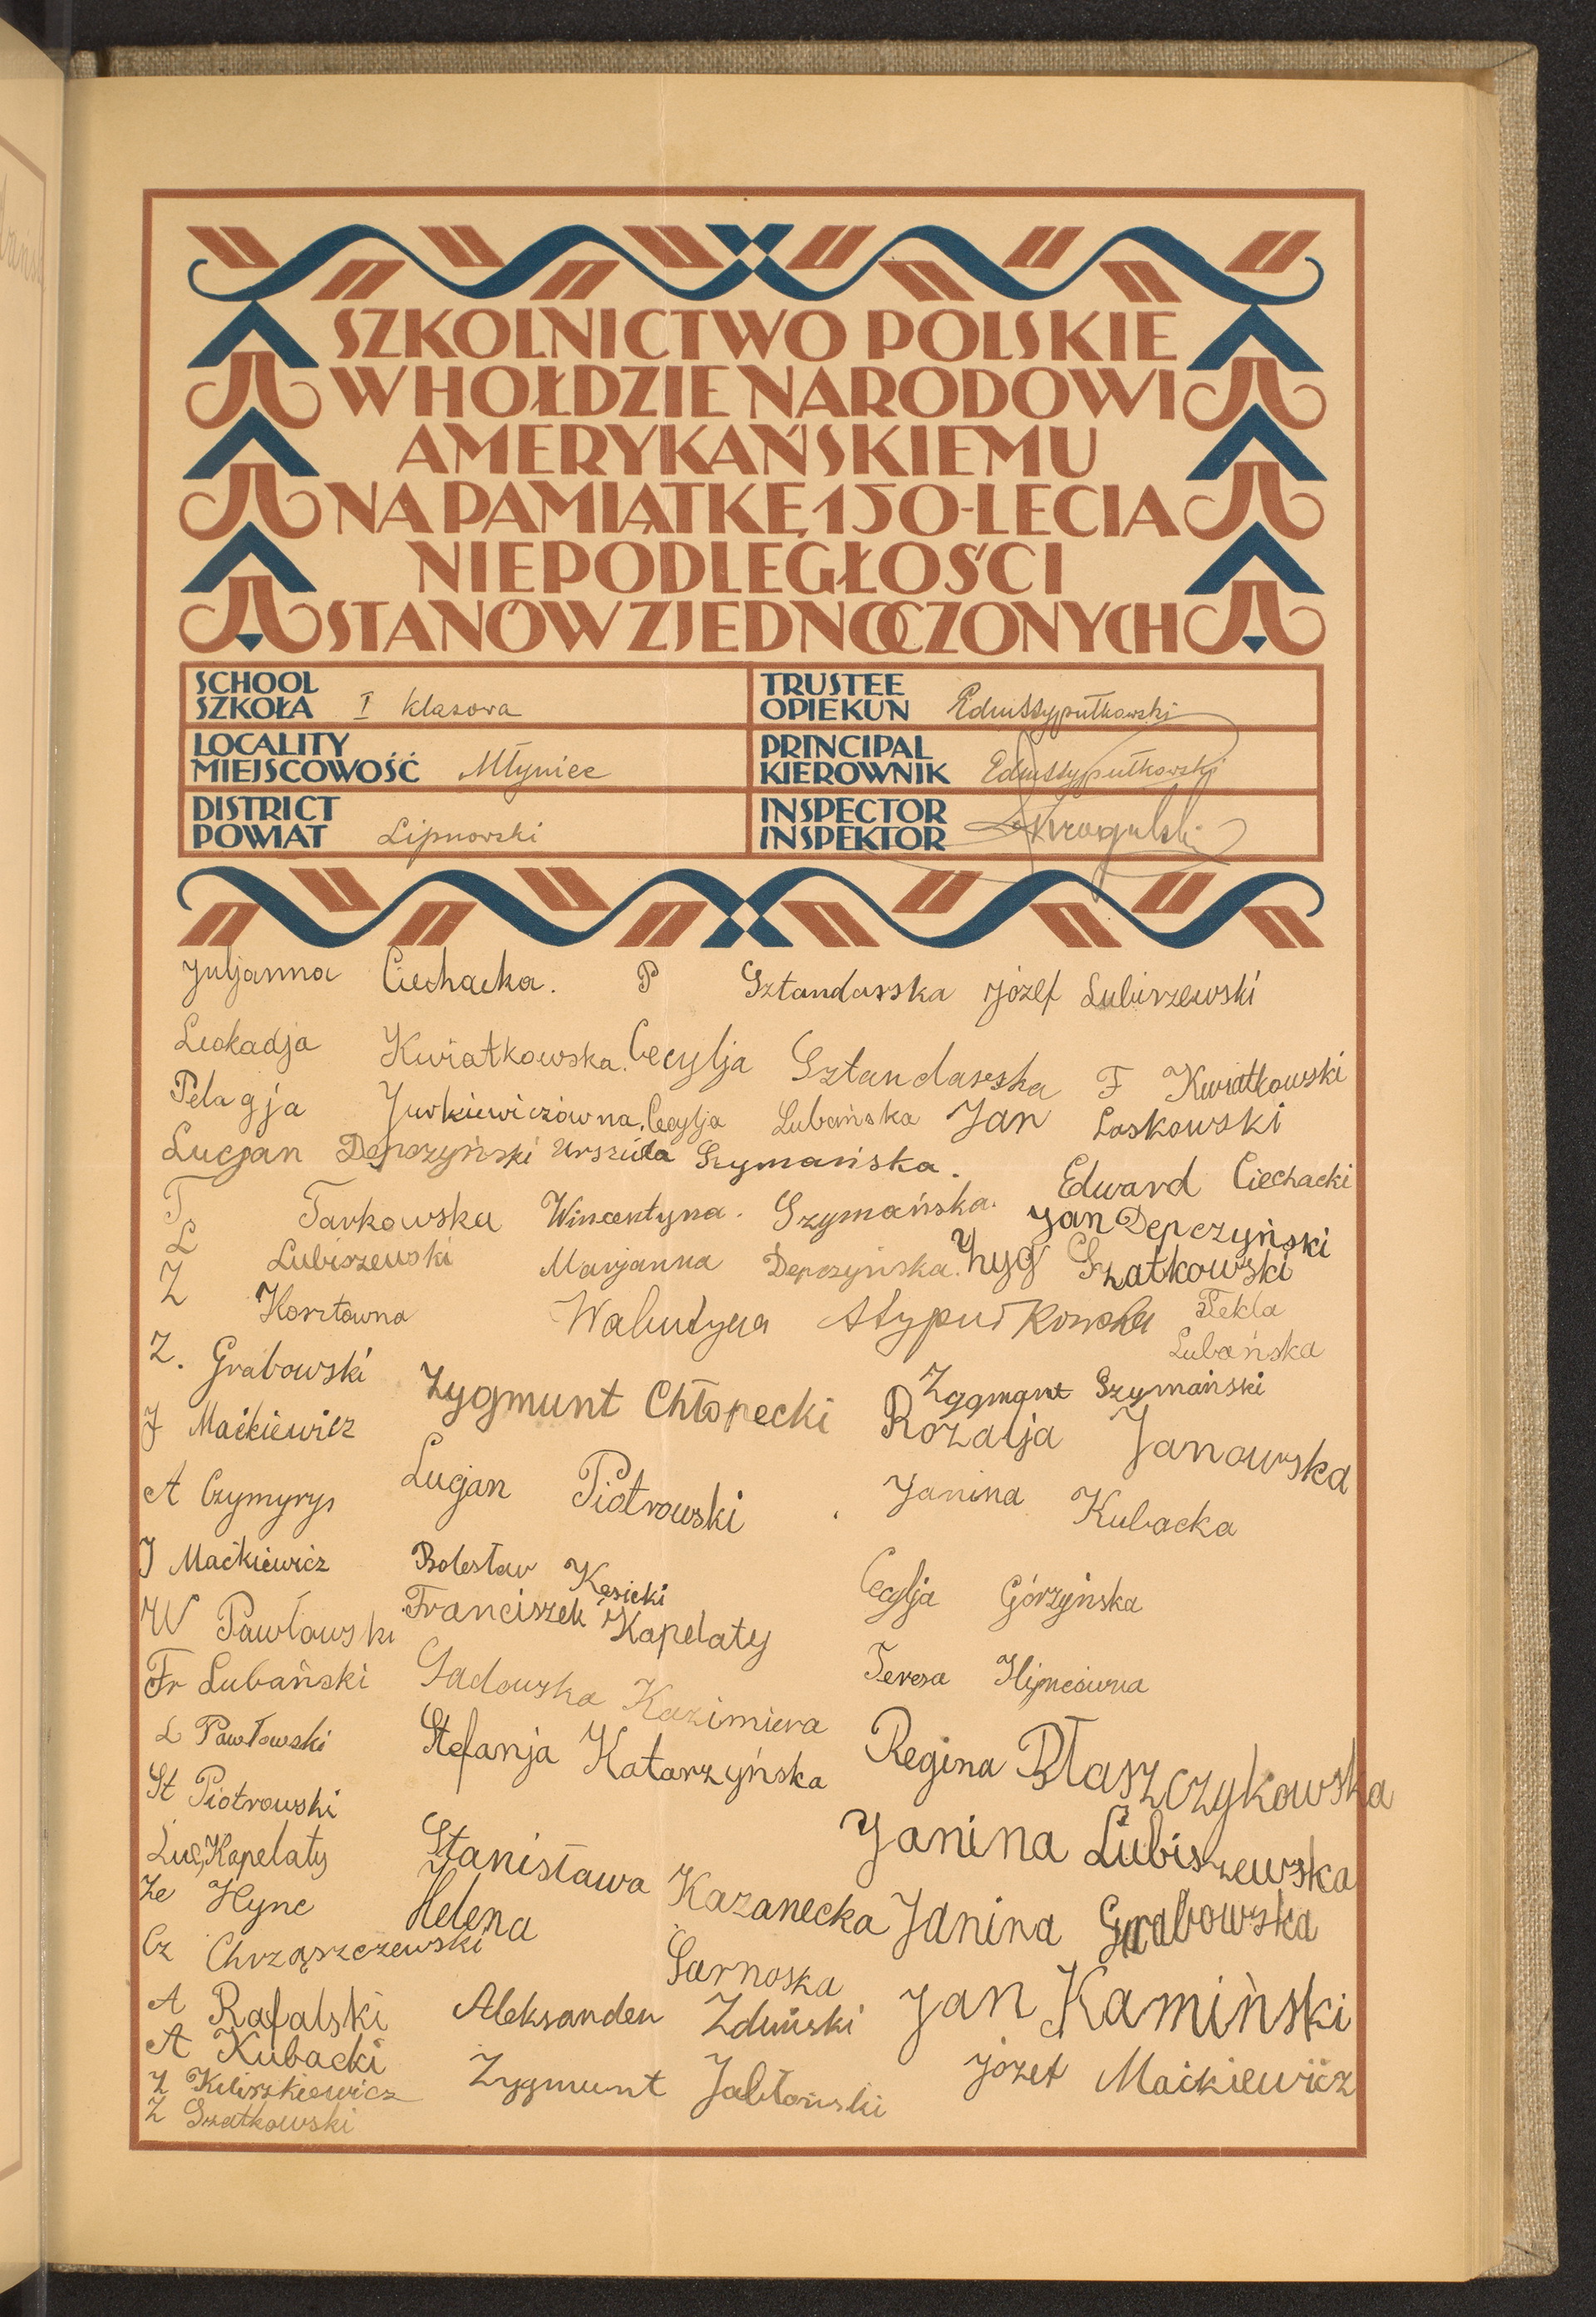 SZKOLNICTWO POLSKIE
W HOŁDZIE NARODOWI
AMERYKAŃSKIEMU
NA PAMIĄTKĘ 150-LECIA
NIEPODLEGŁOŚCI
STANÓW ZJEDNOCZONYCH
SCHOOL
SZKOŁA I klasowa
TRUSTEE
OPIEKUN EdmStypułkowski
LOCALITY
MIEJSCOWOŚĆ Młyniec
PRINCIPAL
KIEROWNIK EdmStypułkowski
DISTRICT
POWIAT Lipnowski
INSPECTOR
INSPEKTOR
Juljanna Ciechacka. P Sztandarska Józef Lubiszewski
Leokadja Kwiatkowska. Cecylja Sztandarska F Kwiatkowski
Pelagja Jurkiewiczówna. Cecylja Lubańska Jan Laskowski
Lucjan Depczyński Urszula Szymańska.
Edward Ciechacki
T Tarkowska Wincentyna. Szymańska.
Jan Depczyński
L Lubiszewski Marjanna Depczyńska. Zyg Szatkowski
Z Kosztowna Stypułkowska Tekla
Lubańska
Z. Grabowski Zygmunt Chłopecki Zygmunt Szymański
J Maćkiewicz Rozalja Janowska
A Czymyrys Lucjan Piotrowski Janina Kubacka
J Maćkiewicz Bolesław Kęsicki Cecylja Górzyńska
W Pawłowski Franciszek Kapelaty
Fr Lubański Sadowska Kazimiera Teresa Hyncówna
L Pawłowski Stefanja Katarzyńska Regina Błaszczykowska
St Piotrowski
Luc Kapelaty Stanisława Kazanecka Janina Lubiszewska
Ze Hync Helena Sarnoska Janina Grabowska
Cz Chrząszczewski
A Rafalski Aleksander Zduński Jan Kamiński
A Kubacki
Z Kiliszkiewicz Zygmunt Jabłoński Józef Maćkiewicz
Z Szatkowski